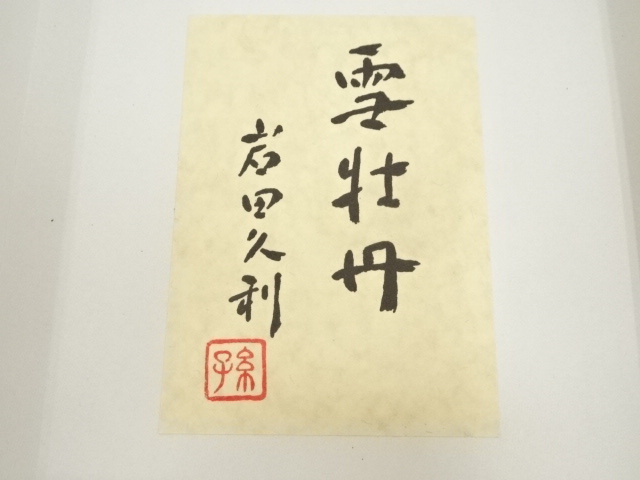 雪牡丹
岩田久利
孫